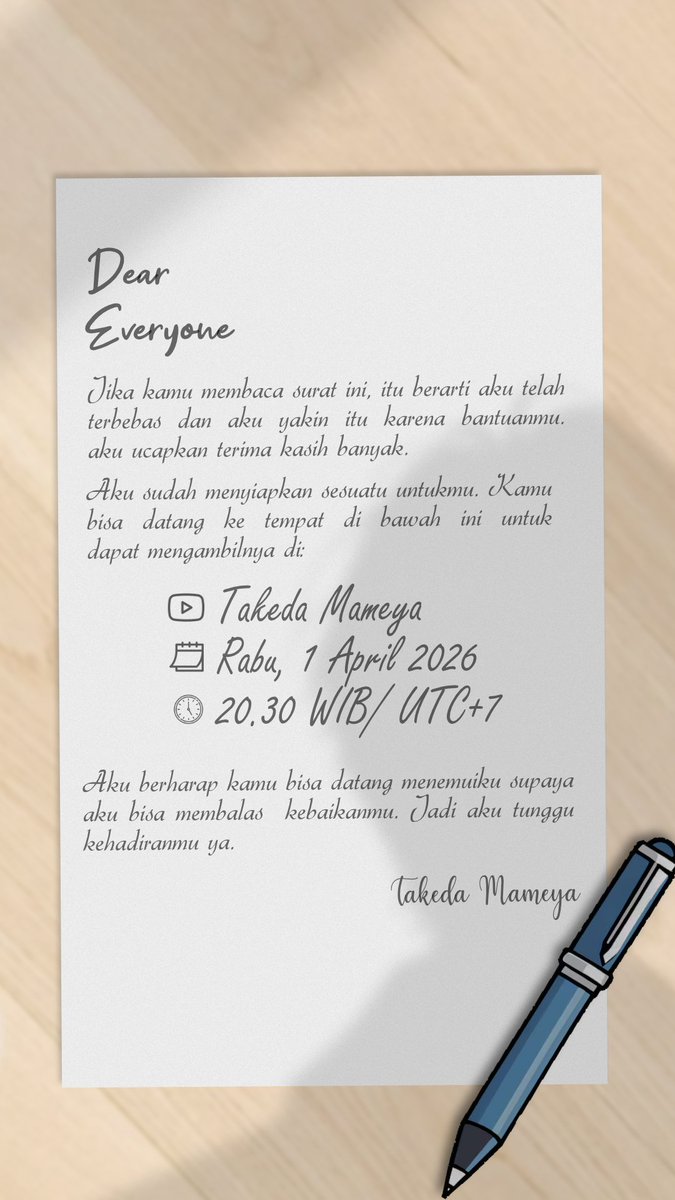 Dear
Everyone
Jika kamu membaca surat ini, itu berarti aku telah
terbebas dan aku yakin itu karena bantuanmu.
aku ucapkan terima kasih banyak.
Aku sudah menyiapkan sesuatu untukmu. Kamu
bisa datang ke tempat di bawah ini untuk
dapat mengambilnya di:
Takeda Mameya
Rabu, 1 April 2026
20.30 WIB/ UTC+7
Aku berharap kamu bisa datang menemuiku supaya
aku bisa membalas kebaikanmu. Jadi aku tunggu
kehadiranmu ya.
Takeda Mameya